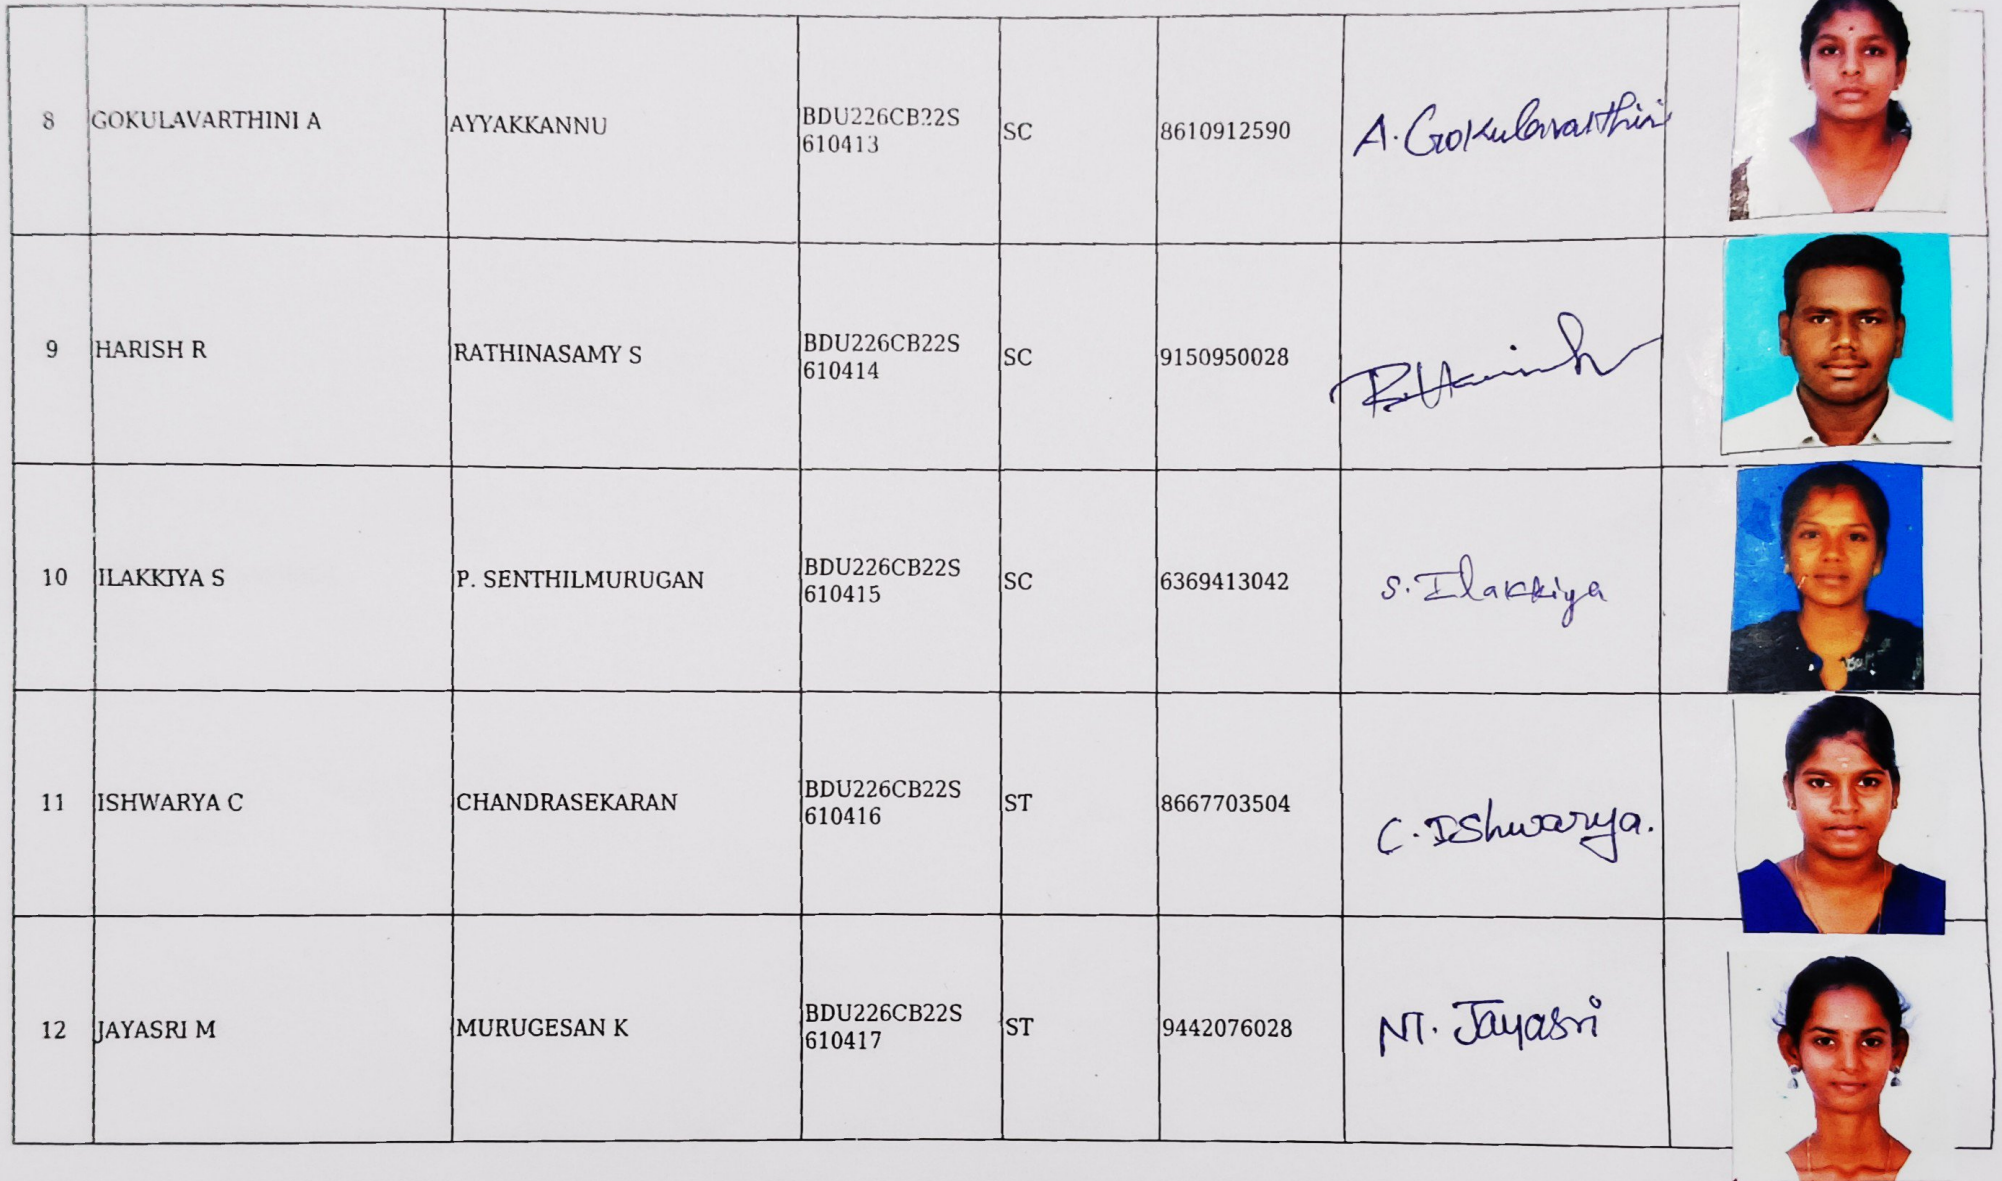 8 GOKULAVARTHINI A AYYAKKANNU BDU226CB22S 610413 SC 8610912590 A. Gokulavarthini
9 HARISH R RATHINASAMY S BDU226CB22S 610414 SC 9150950028 R. Harish
10 ILAKKIYA S P. SENTHILMURUGAN BDU226CB22S 610415 SC 6369413042 S. Ilakkiya
11 ISHWARYA C CHANDRASEKARAN BDU226CB22S 610416 ST 8667703504 C. IShwarya.
12 JAYASRI M MURUGESAN K BDU226CB22S 610417 ST 9442076028 M. Jayasri